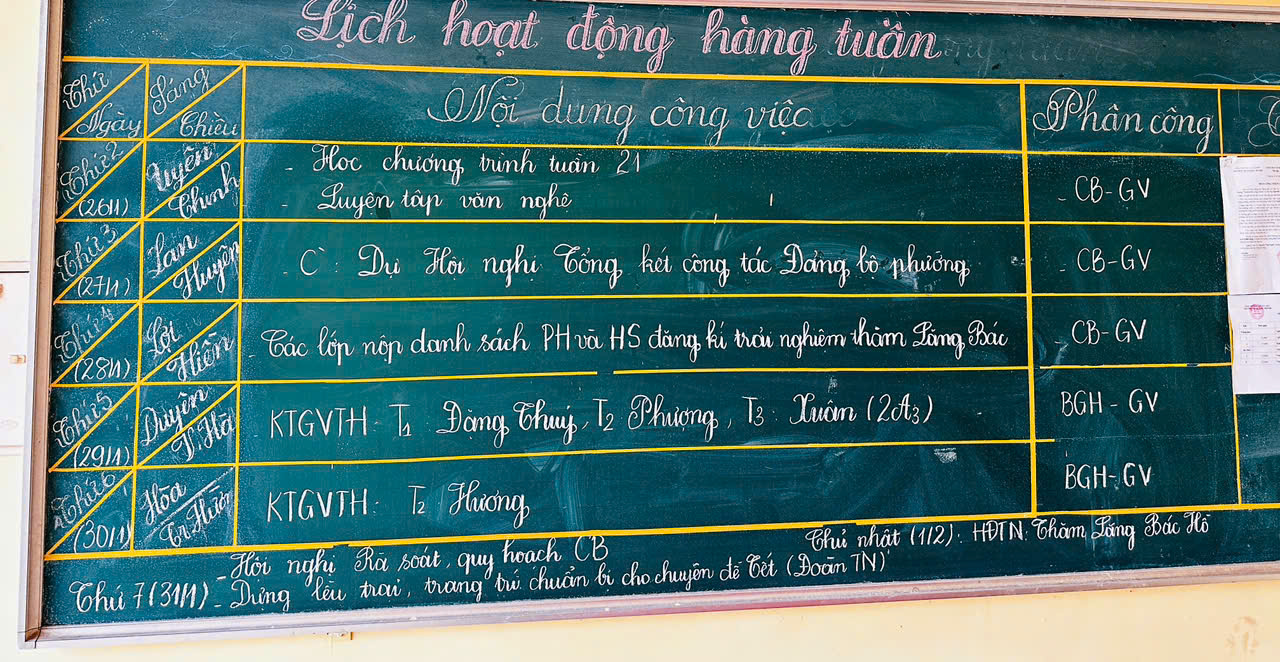 Lịch hoạt động hàng tuần
Thứ Ngày Sáng Chiều Nội dung công việc Phân công
Thứ 2 (26/1) Uyên Chinh - Học chương trình tuần 21 - CB-GV
- Luyện tập văn nghệ
Thứ 3 (27/1) Lan Huyên - C: Dự Hội nghị Tổng kết công tác Đảng bộ phường - CB-GV
Thứ 4 (28/1) Lợi Hiền - Các lớp nộp danh sách PH và HS đăng kí trải nghiệm thăm Lăng Bác - CB-GV
Thứ 5 (29/1) Duyên T.Hà KTGVTH - T1 Đặng Thuý, T2 Phương, T3 Xuân (2A3) BGH - GV
Thứ 6 (30/1) Hòa KTGVTH - T2 Hương BGH-GV
- Hội nghị Rà soát, quy hoạch CB Chủ nhật (1/2): HĐTN: Thăm Lăng Bác Hồ
Thứ 7 (31/1) - Dựng lều trại, trang trí chuẩn bị cho chuyên đề Tết (Đoàn TN)